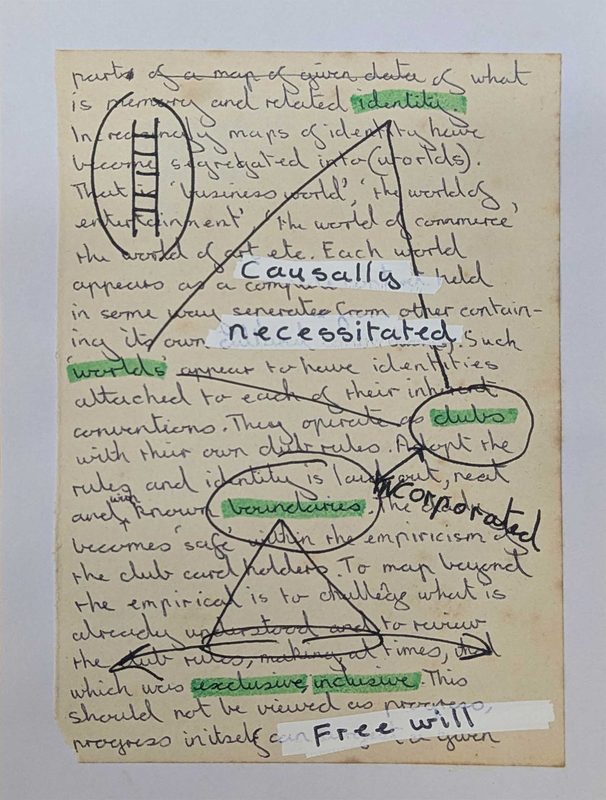 parts of a map of given data of what
is memory and related identity.
Increasingly maps of identity have
become segregated into (worlds).
That is 'business world', 'the world of
entertainment' 'the world of commerce',
the world of art etc. Each world
Causally
appears as a held
in some way seperated from other contain-
ing its own
necessitated
Such
'worlds' appear to have identities
attached to each of their inherent
conventions. They operate as clubs
with their own club rules. Adopt the
rules and identity is laid out, neat
and known boundaries. The
Incorporated
becomes 'safe' within the empiricism of
the club card holders. To map beyond
the empirical is to challenge what is
already understood and to review
the club rules, making at times, that
which was exclusive, inclusive. This
should not be viewed as progress,
Free will
progress in itself can given